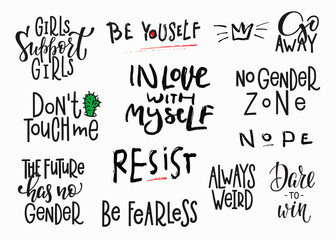 GIRLS
Support
GIRLS
BE YOUSELF
Go
AWAY
Don't
TOUCH me
IN LOVE
WITH
MYSELF
NO GENDER
ZONE
NOPE
THE FUTURE
has no
GENDER
RESIST
BE FEARLESS
ALWAYS
WEIRD
Dare
-TO-
win